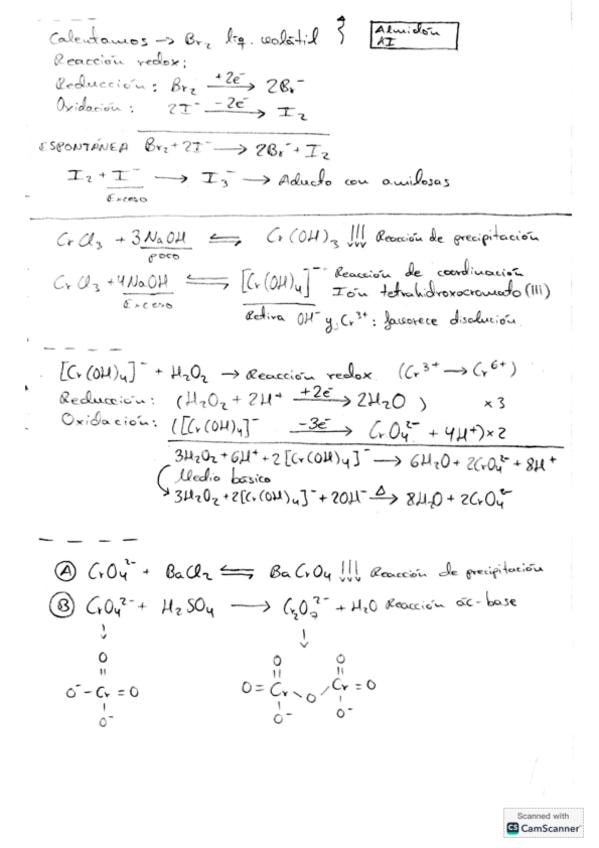 Calentamos → Br₂ líq. volátil } Almidón
AI
Reacción redox:
Reducción: Br₂ +2e⁻→ 2Br⁻
Oxidación: 2I⁻ -2e⁻→ I₂
ESPONTÁNEA Br₂+2I⁻ → 2Br⁻+I₂
I₂ + I⁻ → I₃⁻ → Aducto con amilosas
Exceso
CrCl₃ + 3NaOH ⇌ Cr(OH)₃ ↓↓↓ Reacción de precipitación
poco
CrCl₃ + 4NaOH ⇌ [Cr(OH)₄]⁻ Reacción de coordinación
Exceso Ión tetrahidroxocromato (III)
Retira OH⁻ y Cr³⁺: favorece disolución.
[Cr(OH)₄]⁻ + H₂O₂ → Reacción redox (Cr³⁺ → Cr⁶⁺)
Reducción: (H₂O₂ + 2H⁺ +2e⁻→ 2H₂O) ×3
Oxidación: ([Cr(OH)₄]⁻ -3e⁻→ CrO₄²⁻ + 4H⁺)×2
3H₂O₂+6H⁺+2[Cr(OH)₄]⁻ → 6H₂O+2CrO₄²⁻+8H⁺
Medio básico
3H₂O₂+2[Cr(OH)₄]⁻+2OH⁻ Δ→ 8H₂O+2CrO₄²⁻
Ⓐ CrO₄²⁻ + BaCl₂ ⇌ BaCrO₄ ↓↓↓ Reacción de precipitación
Ⓑ CrO₄²⁻ + H₂SO₄ → Cr₂O₇²⁻ + H₂O Reacción ác-base
O O O
O⁻-Cr=O O=Cr O Cr=O
O⁻ O⁻ O⁻
Scanned with
CS CamScanner